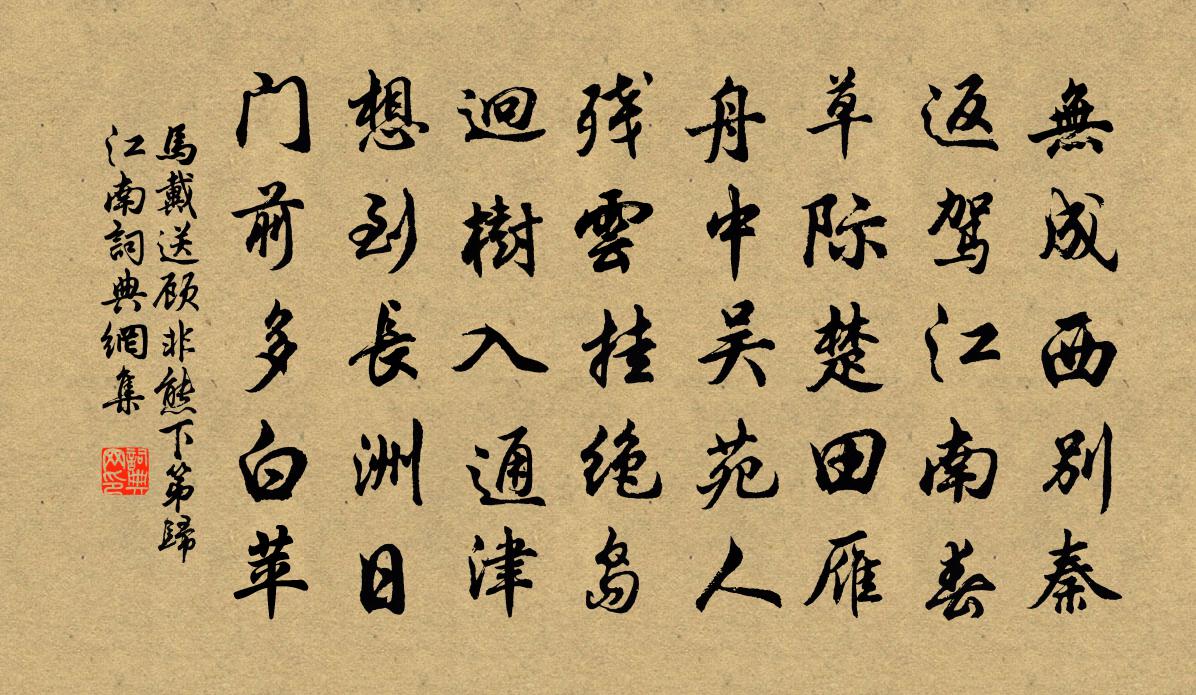 無成西别秦
返驾江南春
草际楚田雁
舟中吴苑人
残雲挂绝岛
迥樹入通津
想到長洲日
门前多白苹
馬戴送顾非熊下第歸
江南詞典網集
詞典网印